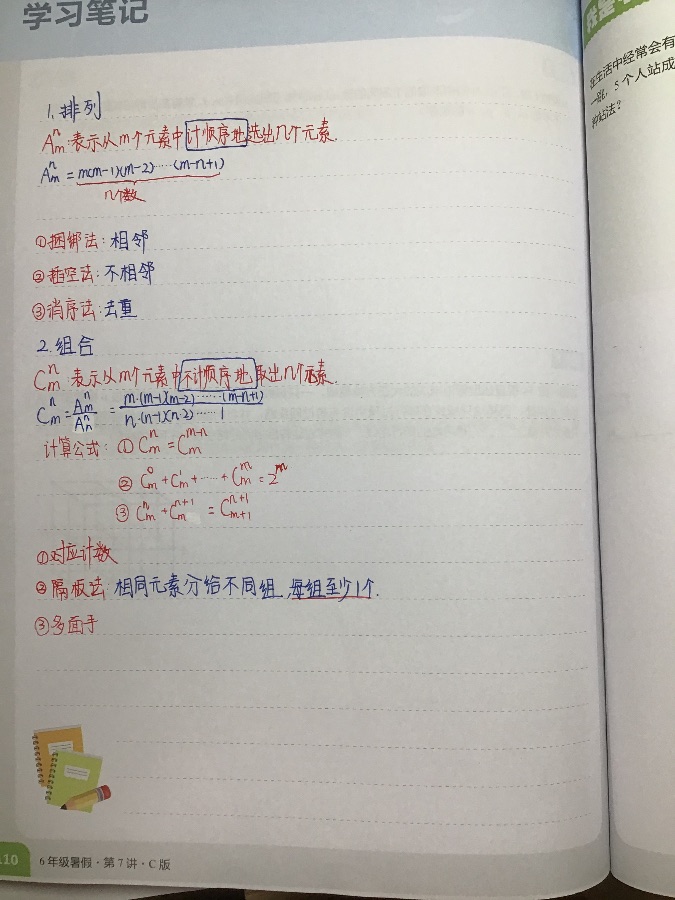 学习笔记
1.排列
A_m^n:表示从m个元素中计顺序地选出几个元素.
A_m^n = m(m-1)(m-2)……(m-n+1)
n个数
①捆绑法:相邻
②插空法:不相邻
③消序法:去重
2.组合
C_m^n:表示从m个元素中不计顺序地取出几个元素.
C_m^n = A_m^n / A_n^n = m·(m-1)(m-2)……(m-n+1) / n·(n-1)(n-2)……1
计算公式:①C_m^n = C_m^{m-n}
②C_m^0+C_m^1+……+C_m^m=2^m
③C_m^n+C_m^{n+1} = C_{m+1}^{n+1}
①对应计数
②隔板法:相同元素分给不同组,每组至少1个.
③多面手
110 6年级暑假·第7讲·C版
在生活中经常会有
5个人站成
种站法?